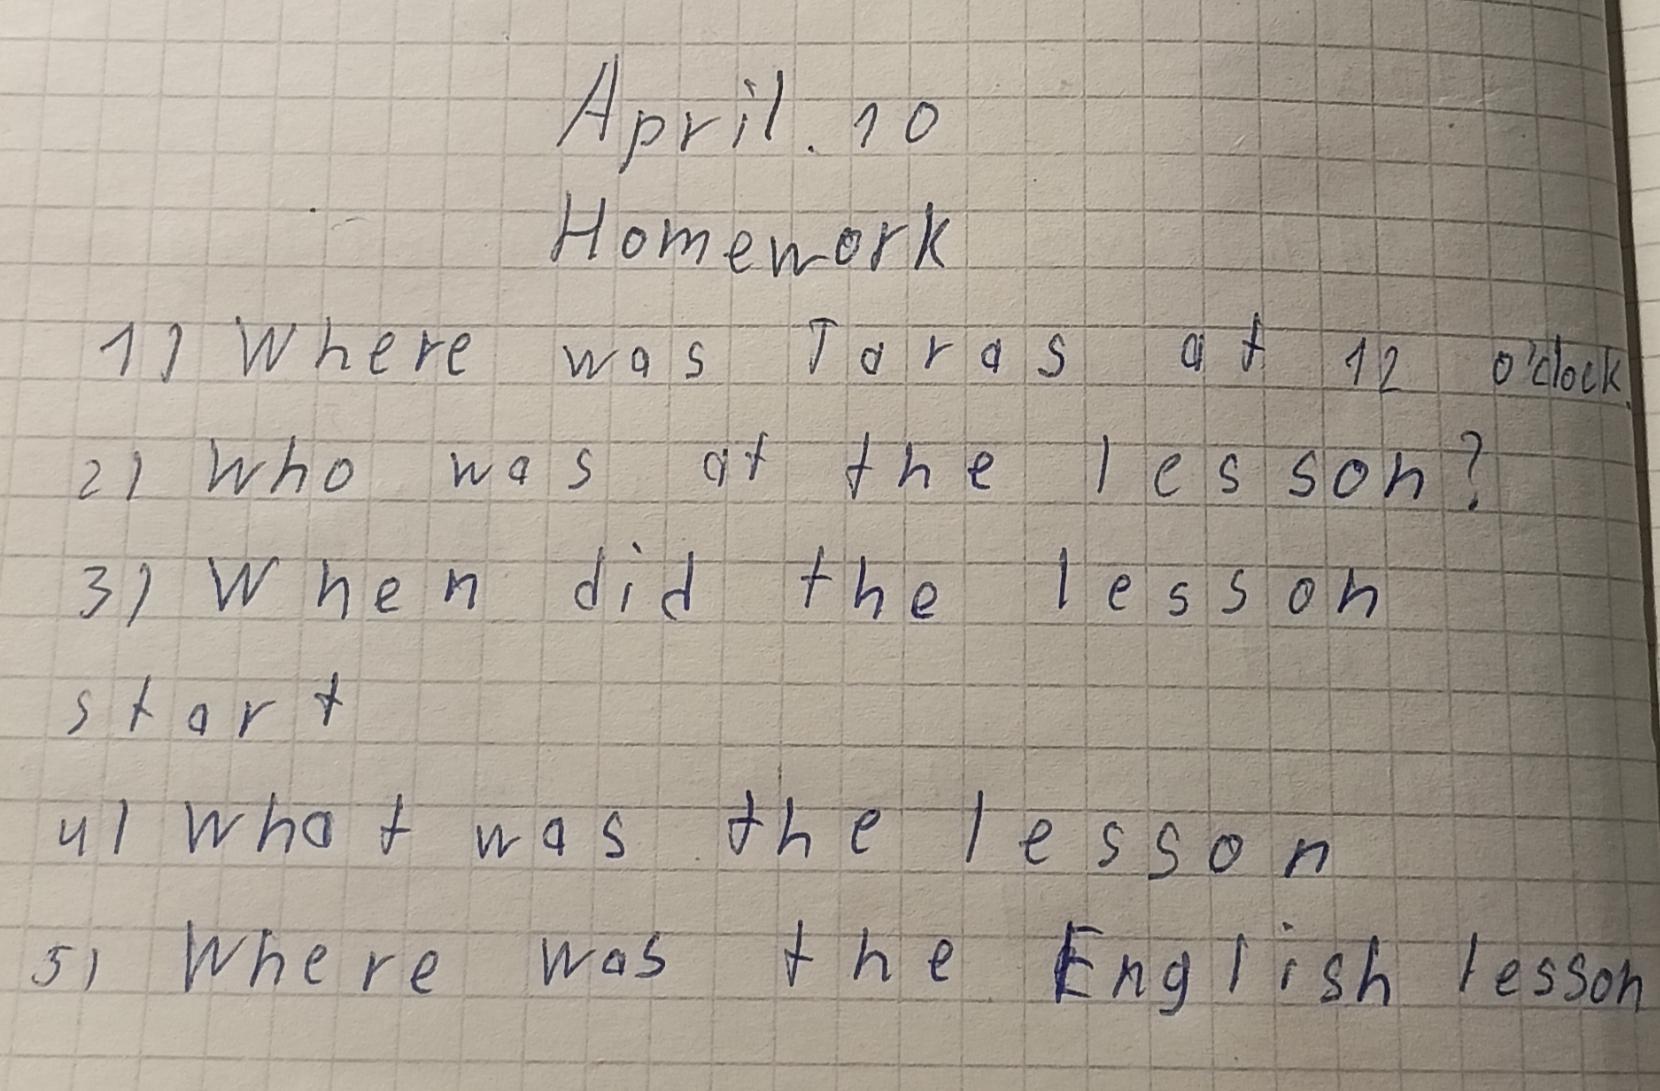 April. 10
Homework
1) Where was Taras at 12 o'clock.
2) Who was at the lesson?
3) When did the lesson
start
4) What was the lesson
5) Where was the English lesson